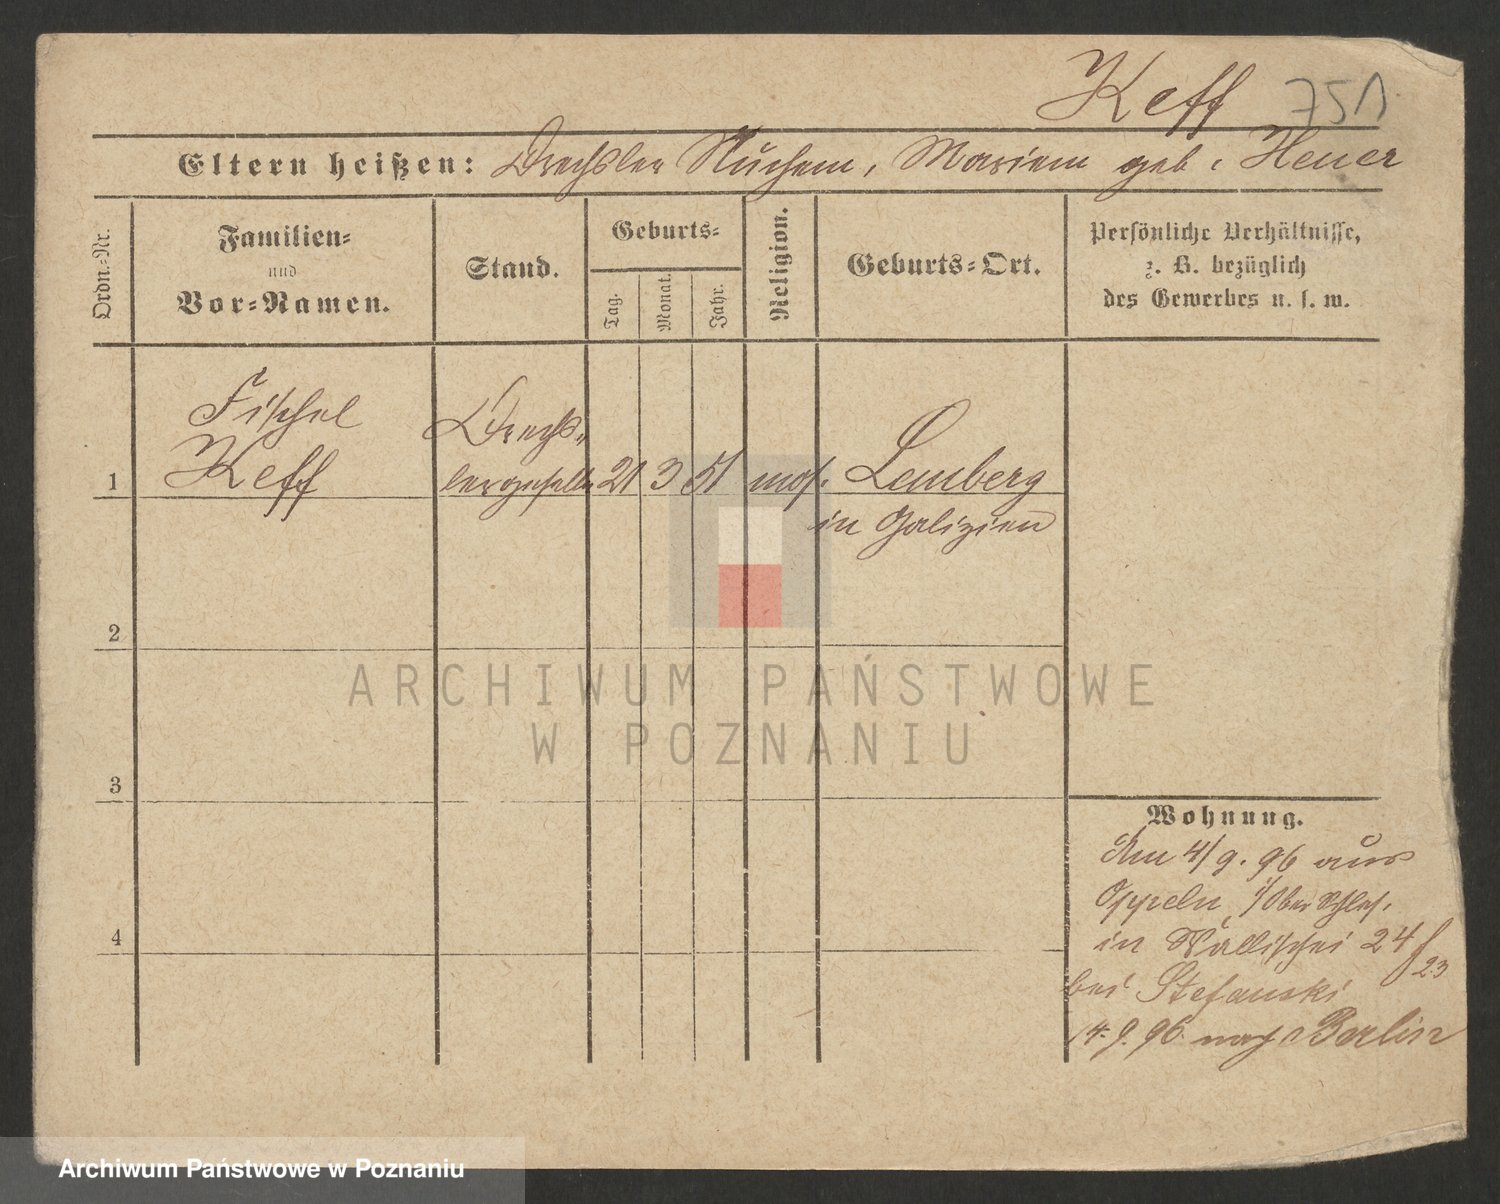 Keff 751
Eltern heißen: Drechsler Nuchem, Mariem geb. Heuer
Ordn.-Nr.
Familien-
und
Vor-Namen.
Stand.
Geburts-
Tag.
Monat.
Jahr.
Religion.
Geburts-Ort.
Persönliche Verhältnisse,
z. B. bezüglich
des Gewerbes u. s. w.
1
Fischel
Keff
Drechs-
lergeselle
21 3 51 mos. Lemberg
in Galizien
2
3
4
Wohnung.
Am 4/9. 96 aus
Oppeln i/Ober Schles.
in Wallischei 24
23
bei Stefanski
14. 9. 96 nach Berlin
ARCHIWUM PAŃSTWOWE
W POZNANIU
Archiwum Państwowe w Poznaniu